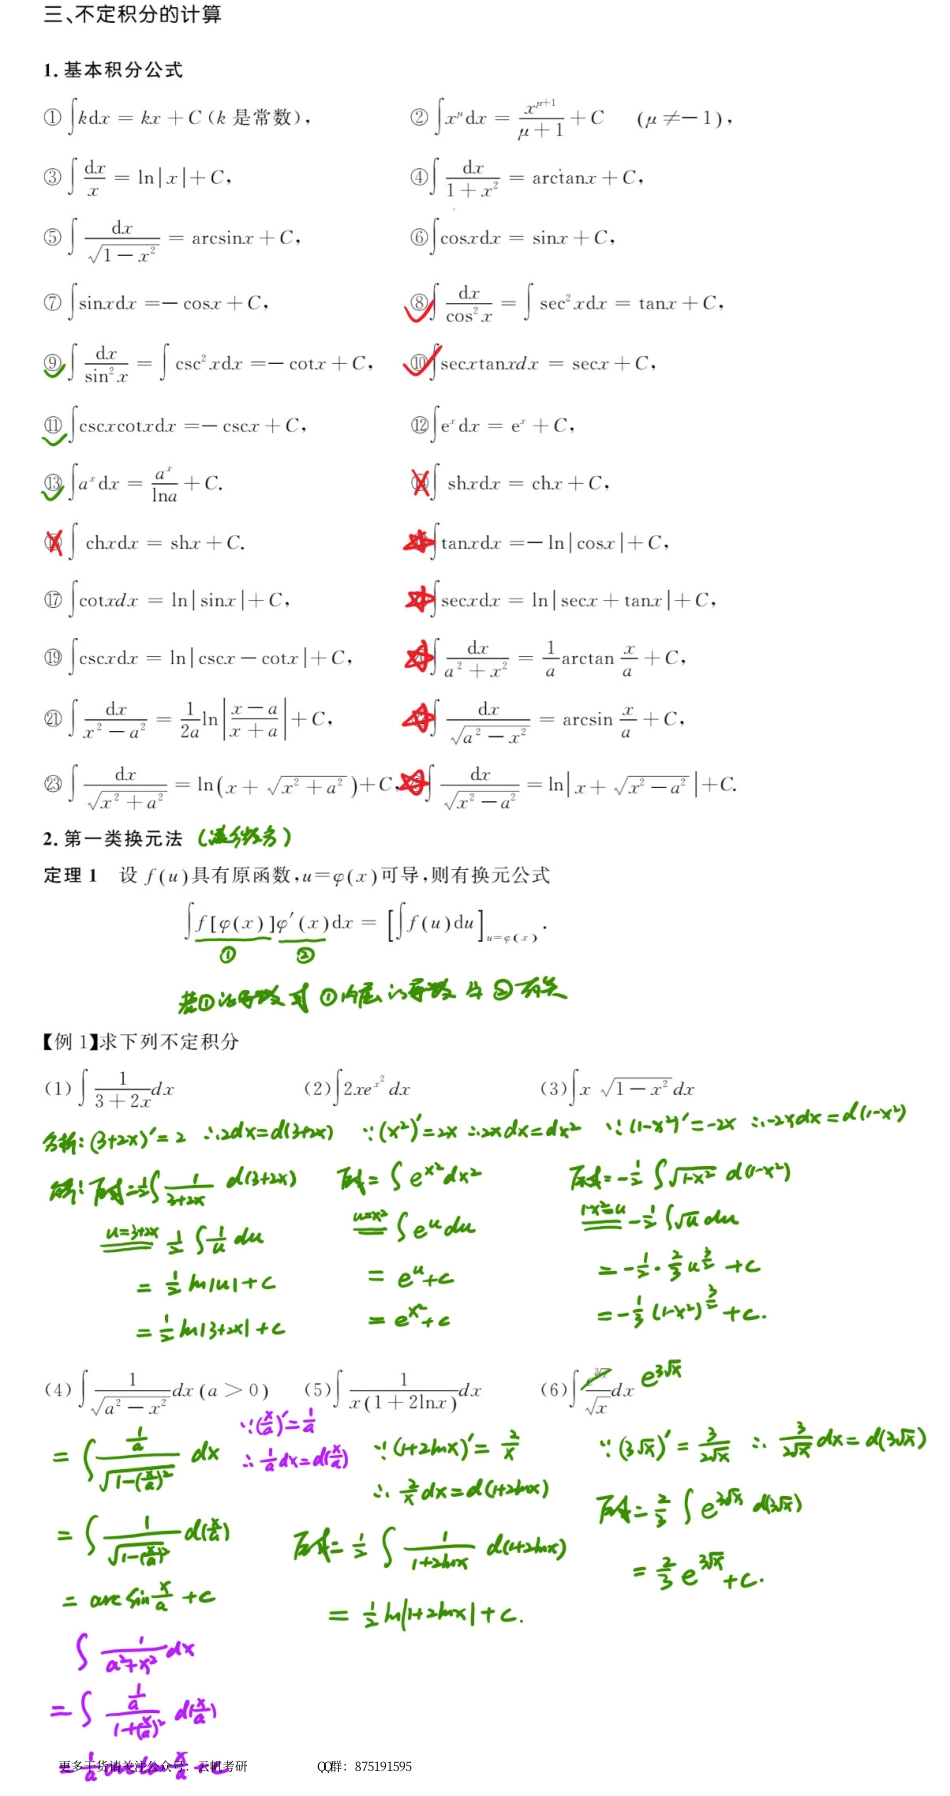 三、不定积分的计算
1. 基本积分公式
① ∫kdx = kx + C (k 是常数),
② ∫x^μ dx = x^(μ+1)/(μ+1) + C (μ ≠ −1),
③ ∫dx/x = ln|x| + C,
④ ∫dx/(1+x²) = arctanx + C,
⑤ ∫dx/√(1−x²) = arcsinx + C,
⑥ ∫cosxdx = sinx + C,
⑦ ∫sinxdx = − cosx + C,
⑧ ∫dx/cos²x = ∫sec²xdx = tanx + C,
⑨ ∫dx/sin²x = ∫csc²xdx = − cotx + C,
⑩ ∫secxtanxdx = secx + C,
⑪ ∫cscxcotxdx = − cscx + C,
⑫ ∫e^x dx = e^x + C,
⑬ ∫a^x dx = a^x/lna + C.
∫shxdx = chx + C,
∫chxdx = shx + C.
∫tanxdx = − ln|cosx| + C,
⑰ ∫cotxdx = ln|sinx| + C,
∫secxdx = ln|secx + tanx| + C,
⑲ ∫cscxdx = ln|cscx − cotx| + C,
∫dx/(a²+x²) = 1/a arctan x/a + C,
㉑ ∫dx/(x²−a²) = 1/2a ln|(x−a)/(x+a)| + C,
∫dx/√(a²−x²) = arcsin x/a + C,
㉓ ∫dx/√(x²+a²) = ln(x + √(x²+a²)) + C,
∫dx/√(x²−a²) = ln|x + √(x²−a²)| + C.
2. 第一类换元法 (凑微分)
定理 1 设 f(u)具有原函数,u=φ(x)可导,则有换元公式
∫f[φ(x)]φ′(x)dx = [∫f(u)du]_{u=φ(x)}.
① ②
若①的导数或①内层的导数与②有关
【例 1】求下列不定积分
(1) ∫1/(3+2x) dx (2) ∫2xe^(x²) dx (3) ∫x √(1−x²) dx
分析: (3+2x)′=2 ∴2dx=d(3+2x) ∵(x²)′=2x ∴2xdx=dx² ∵(1-x²)′=-2x ∴-2xdx=d(1-x²)
解: 原式=½∫1/(3+2x) d(3+2x) 原式=∫e^(x²)dx² 原式=-½∫√(1-x²) d(1-x²)
u=3+2x ½∫1/u du u=x² ∫e^u du 1-x²=u -½∫√u du
= ½ ln|u|+C = e^u+C = -½·⅔u^(3/2)+C
= ½ ln|3+2x|+C = e^(x²)+C = -⅓(1-x²)^(3/2)+C.
(4) ∫1/√(a²−x²) dx (a > 0) (5) ∫1/(x(1+2lnx)) dx (6) ∫ /√x dx e^(3√x)
= ∫(1/a)/√(1-(x/a)²) dx ∵(x/a)′=1/a
∴1/a dx=d(x/a)
= ∫1/√(1-(x/a)²) d(x/a)
= arcsin x/a +C
∫1/(a²+x²) dx
= ∫(1/a)/(1+(x/a)²) d(x/a)
= 1/a arctan x/a +C
∵(1+2lnx)′=2/x
∴2/x dx=d(1+2lnx)
原式=½∫1/(1+2lnx) d(1+2lnx)
= ½ ln|1+2lnx|+C.
∵(3√x)′=3/(2√x) ∴3/(2√x) dx=d(3√x)
原式=⅔∫e^(3√x) d(3√x)
= ⅔e^(3√x)+C.
更多干货请关注公众号：云帆考研 QQ群：875191595